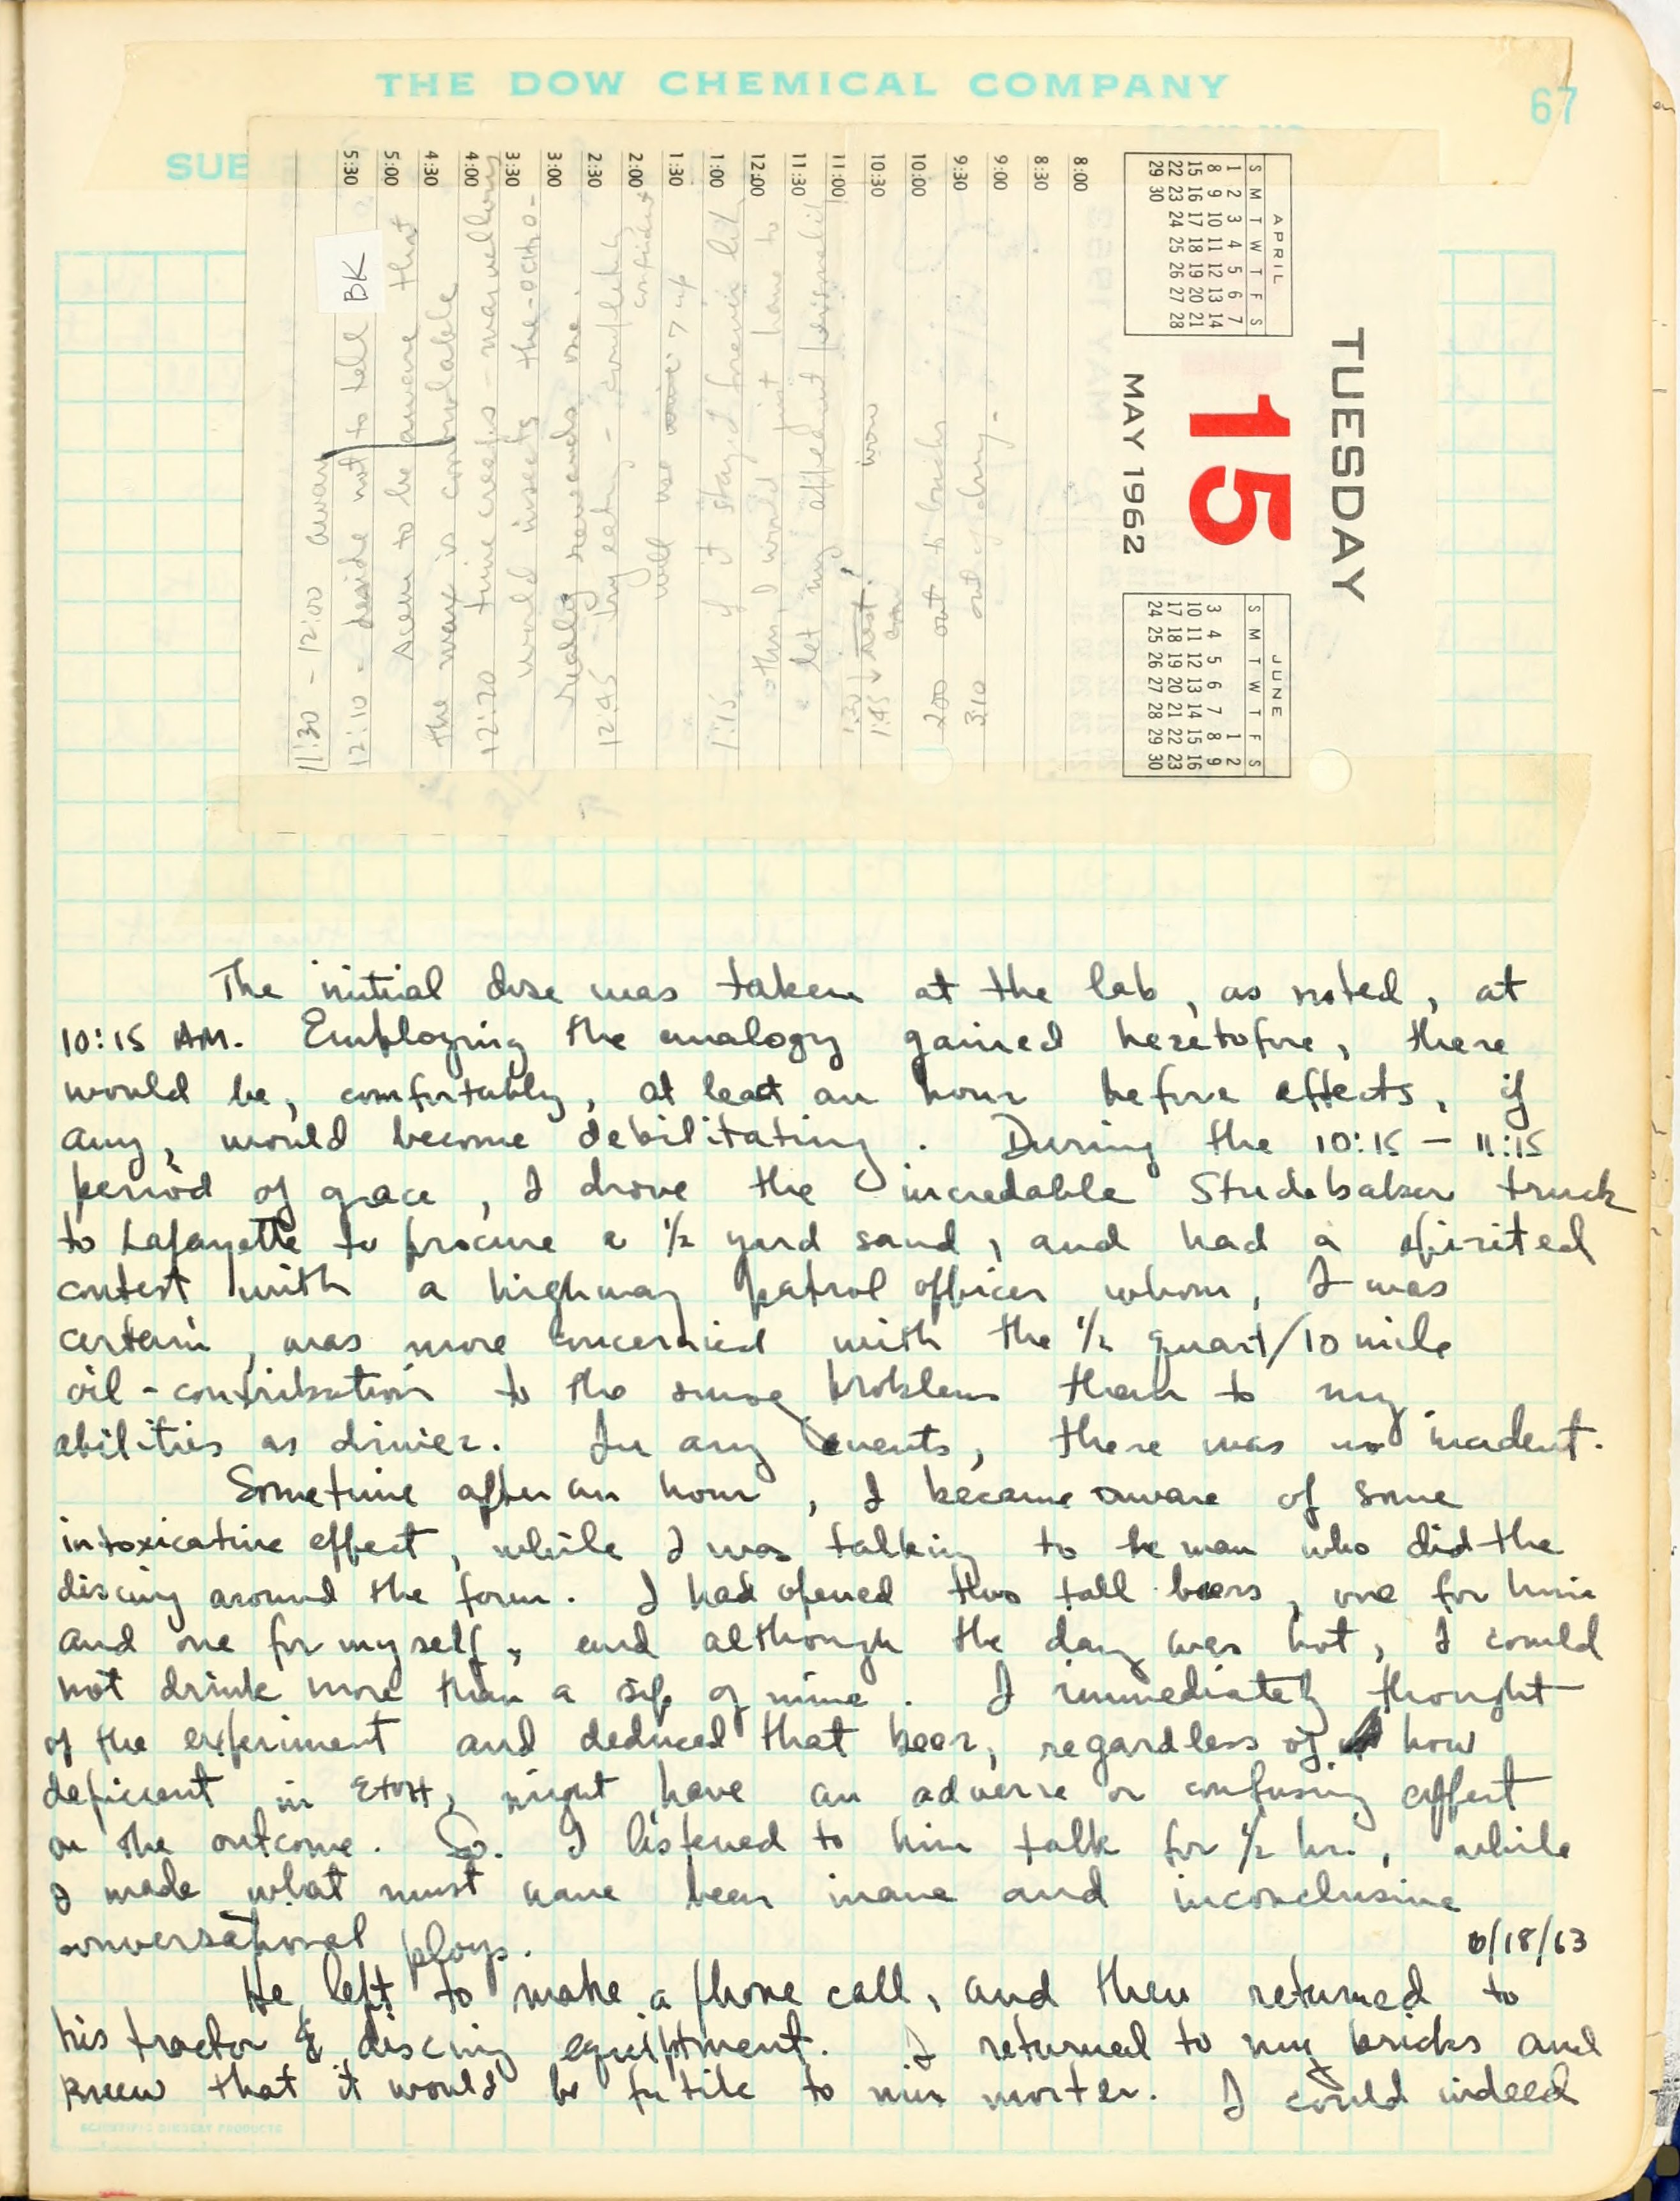 THE DOW CHEMICAL COMPANY
67
SUB
TUESDAY
15
MAY 1962
APRIL
S M T W T F S
1 2 3 4 5 6 7
8 9 10 11 12 13 14
15 16 17 18 19 20 21
22 23 24 25 26 27 28
29 30
JUNE
S M T W T F S
1 2
3 4 5 6 7 8 9
10 11 12 13 14 15 16
17 18 19 20 21 22 23
24 25 26 27 28 29 30
8:00
8:30
9:00
9:30
10:00
10:30
11:00
11:30
12:00
1:00
1:30
2:00
2:30
3:00
3:30
4:00
4:30
5:00
5:30
11:30 - 12:00 aware
12:10 - decide not to tell BK
seem to be aware that
the wax is controlable
12:20 time creeps - marvellous
world insects the-ocho-
really rewards one.
12:45 try eating - completely
confident
will use 7 up
1:15 if it stayed forever like
this, I would just have to
let my affect
1:45
now
2:00 out to bricks
3:10 out of drug.
The initial dose was taken at the lab, as noted, at
10:15 AM. Employing the analogy gained heretofore, there
would be, comfortably, at least an hour before effects, if
any, would become debilitating. During the 10:15 - 11:15
period of grace, I drove the incredable Studebaker truck
to Lafayette to procure a ½ yard sand, and had a spirited
contest with a highway patrol officer whom, I was
certain, was more concerned with the ½ quart/10 mile
oil-contribution to the smog problem than to my
abilities as driver. In any events, there was no incident.
Sometime after an hour, I became aware of some
intoxicative effect, while I was talking to the man who did the
discing around the farm. I had opened two tall beers, one for him
and one for myself, and although the day was hot, I could
not drink more than a sip of mine. I immediately thought
of the experiment and deduced that beer, regardless of how
deficient in EtOH, might have an adverse or confusing effect
on the outcome. So. I listened to him talk for ½ hr., while
I made what must have been inane and inconclusive
conversational ploys.
6/18/63
He left to make a phone call, and then returned to
his tractor & discing equiptment. I returned to my bricks and
knew that it would be futile to mix morter. I could indeed
SCIENTIFIC BINDERY PRODUCTS